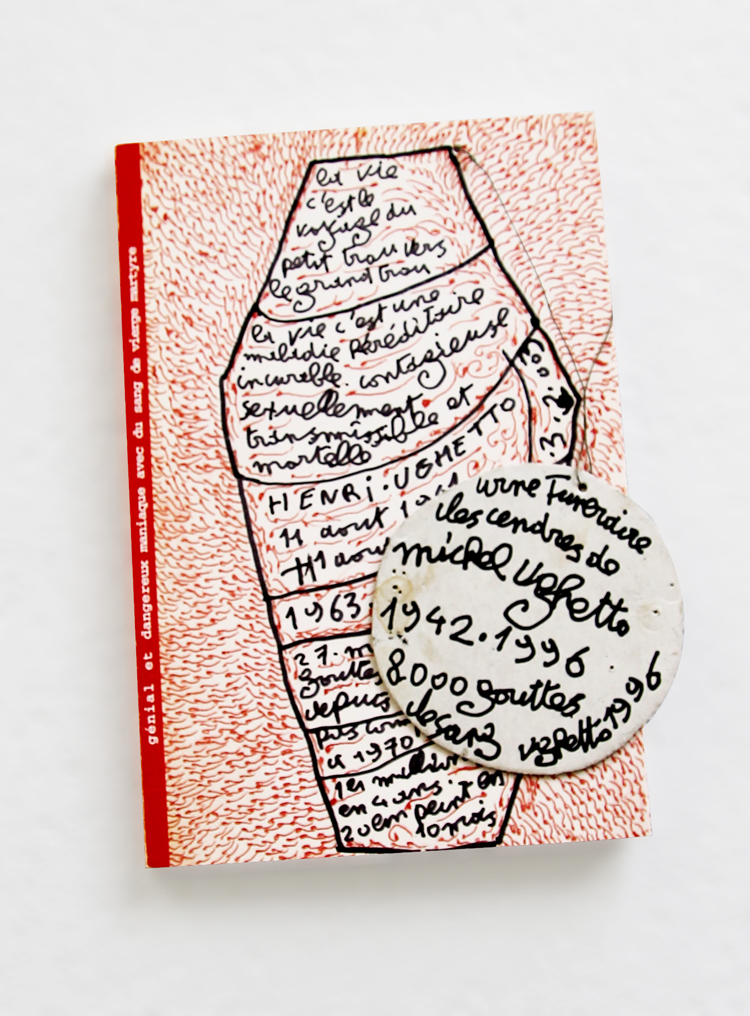 génial et dangereux maniaque avec du sang de vierge martyre
la vie
c'est le
voyage du
petit trou vers
le grand trou
la vie c'est une
maladie héréditaire
incurable. contagieuse
sexuellement
transmissible et
mortelle
HENRI.UGHETTO
11 aout
11 aou
1963.
300.
.3.2
27.m
gouttes
depuis
puis
a 1970
en 4 ans.
peint en
10 mois
urne Funeraire
des cendres de
michel ughetto
1942.1996
8000 gouttes
de sang
ughetto 1996